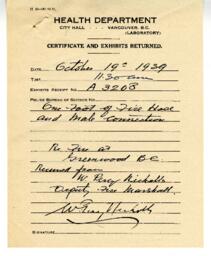 HEALTH DEPARTMENT
CITY HALL VANCOUVER, B.C.
(LABORATORY)
CERTIFICATE AND EXHIBITS RETURNED.
DATE October 19th 1939
TIME 11:30 am
EXHIBITS RECEIPT NO. A 3208
POLICE BUREAU OF SCIENCE FOR
One Part of Fire Hose
and Male connection
Re Fire at
Greenwood BC
Received from
W. Percy Nicholls
Deputy Fire Marshall.
SIGNATURE